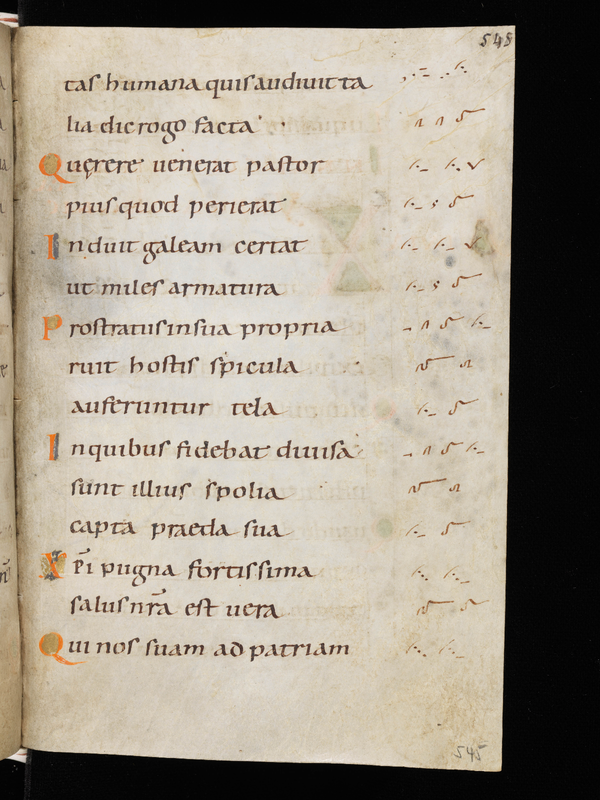 548
tas humana quis audiuit ta
lia dic rogo facta
Quęrere uenerat pastor
pius quod perierat
Induit galeam certat
ut miles armatura
Prostratus in sua propria
ruit hostis spicula
auferuntur tela
In quibus fidebat diuisa
sunt illius spolia
capta praeda sua
Xp̄i pugna fortissima
salus nr̄a est uera
Qui nos suam ad patriam
545